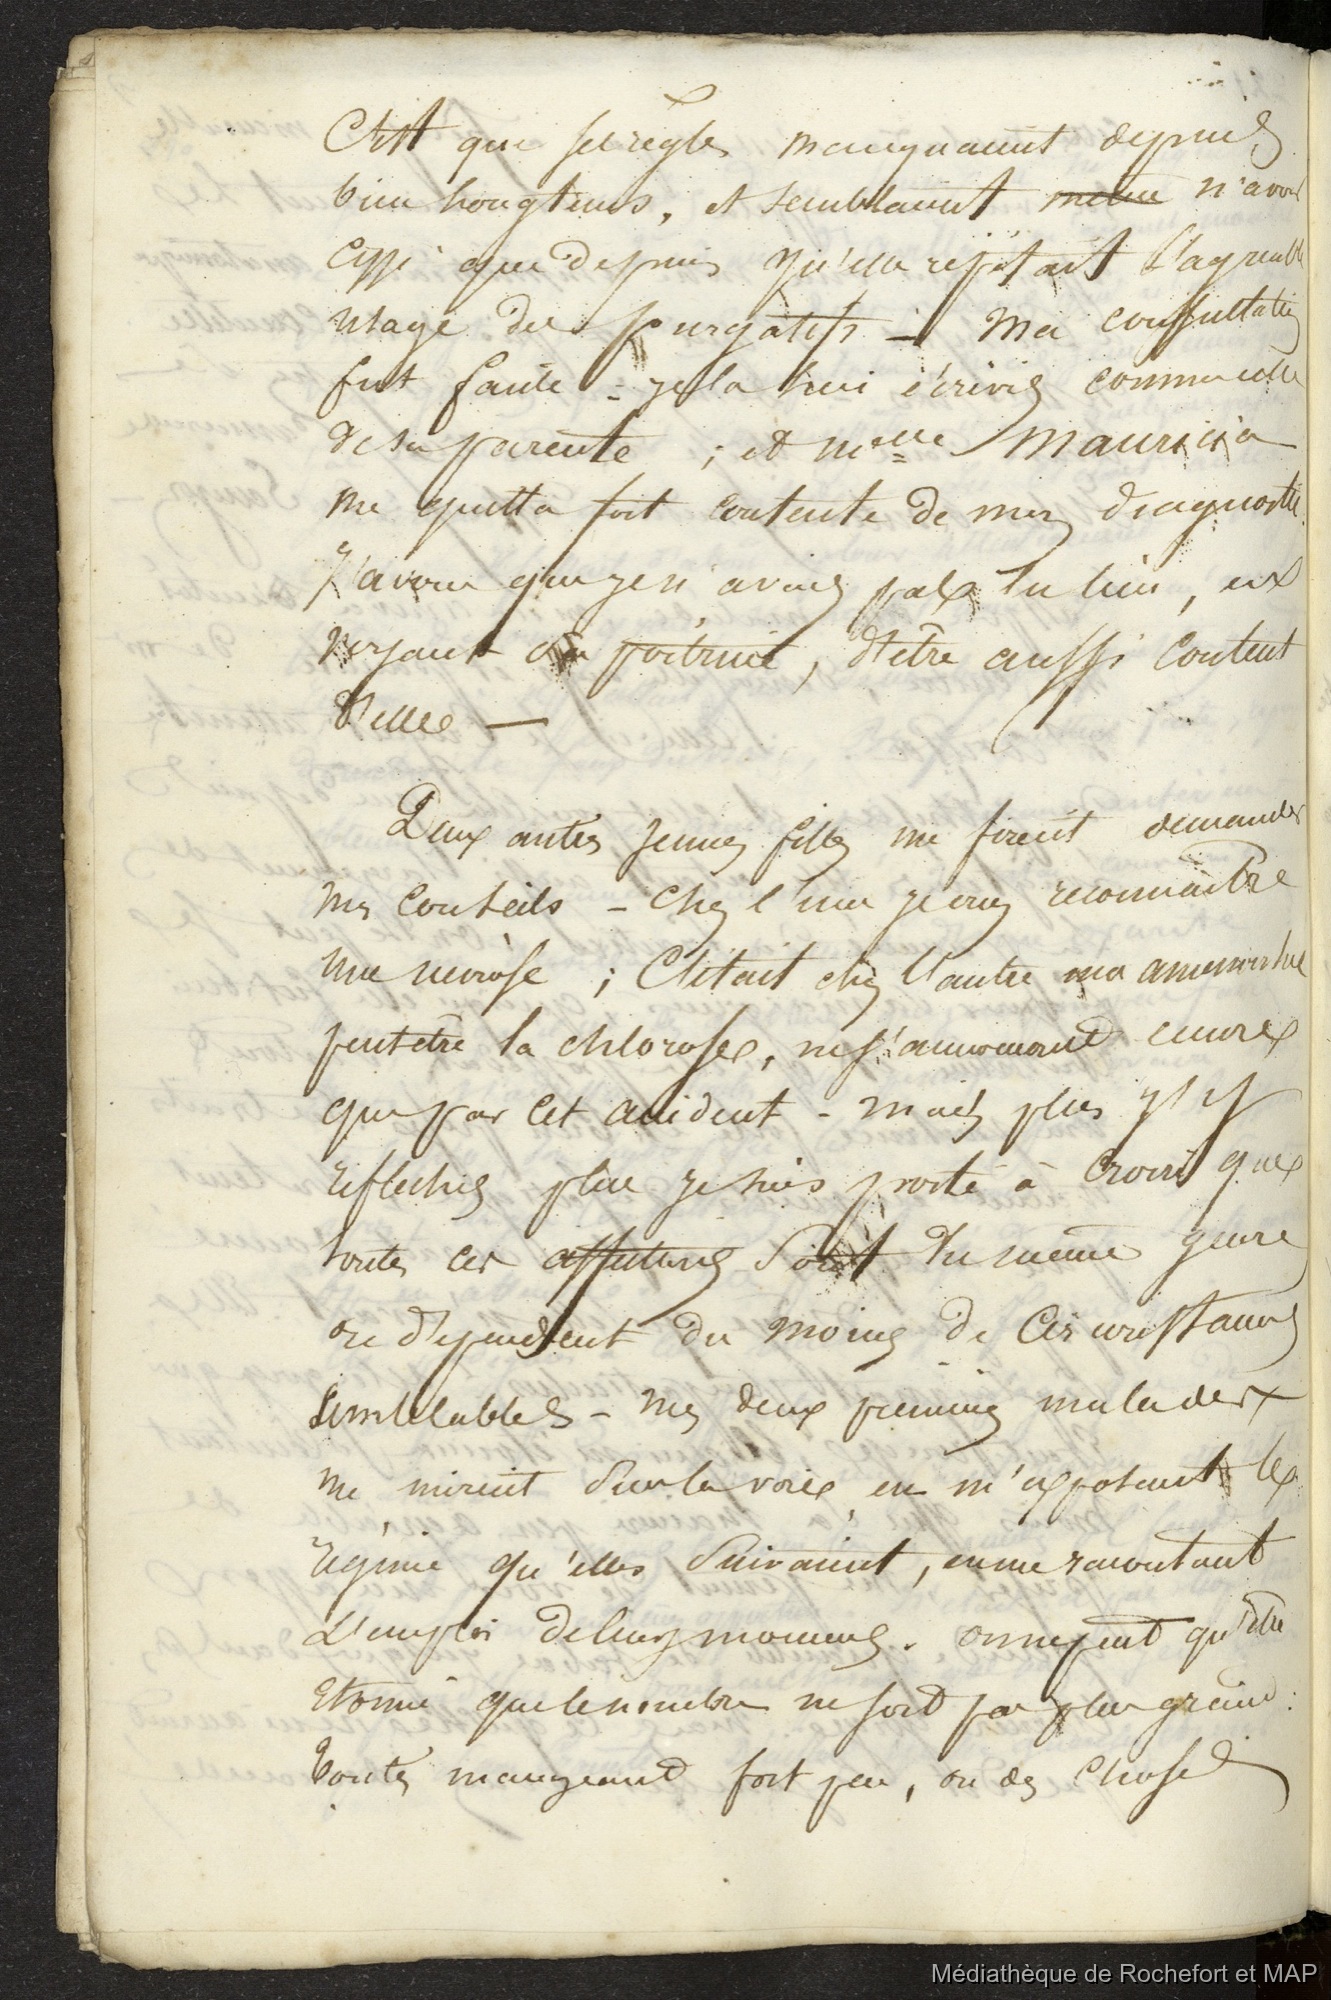 C'est que ses règles manquaient depuis
bien longtems, et semblaient même n'avoir
cessé que depuis qu'elle répétait l'agréable
usage des purgatifs - Ma consultation
fut faite - je la lui écrivis comme celle
de sa parente ; et Melle Mauricia
me quitta fort contente de mes diagnostic.
J'avoue que je n'avais pas lu lieu, en
voyant sa poitrine, d'être aussi content
d'elle —
Deux autres jeunes filles me firent demander
mes conseils - chez l'une je crus reconnaitre
une nevrose ; C'était chez l'autre une amenorrhée
peutêtre la chlorose, ne s'annonçant encore
que par cet accident - mais plus j'y
réfléchis plus je suis porté à croire que
toutes ces affections sont du même genre
ou dépendent du moins de circonstances
semblables - mes deux premières malades
me mirent sur la voie en m'exposant le
régime qu'elles suivaient, en me racontant
l'emploi de leurs momens. on ne peut qu'être
étonné que le nombre ne soit pas plus grand :
toutes mangeant fort peu, ou des choses
Médiathèque de Rochefort et MAP